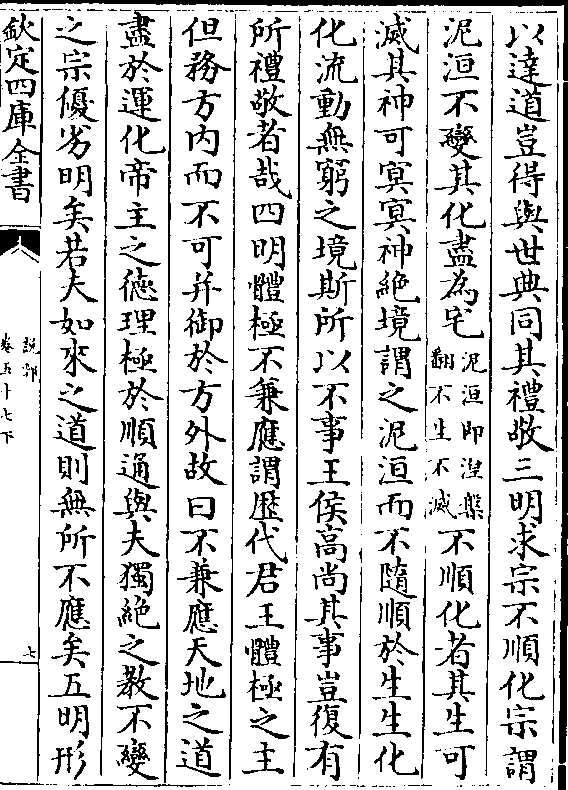 以達道豈得與世典同其禮敬三明求宗不順化宗謂
泥洹不變其化盡為宅泥洹即湼槃翻不生不滅不順化者其生可
滅其神可冥冥神絶境謂之泥洹而不隨順於生生化
化流動無窮之境斯所以不事王侯高尚其事豈復有
所禮敬者哉四明體極不兼應謂歴代君王體極之主
但務方内而不可并御於方外故曰不兼應天地之道
盡於運化帝主之德理極於順通與夫獨絶之教不變
之宗優劣明矣若夫如來之道則無所不應矣五明形
欽定四庫全書
說郛
卷五十七下
七